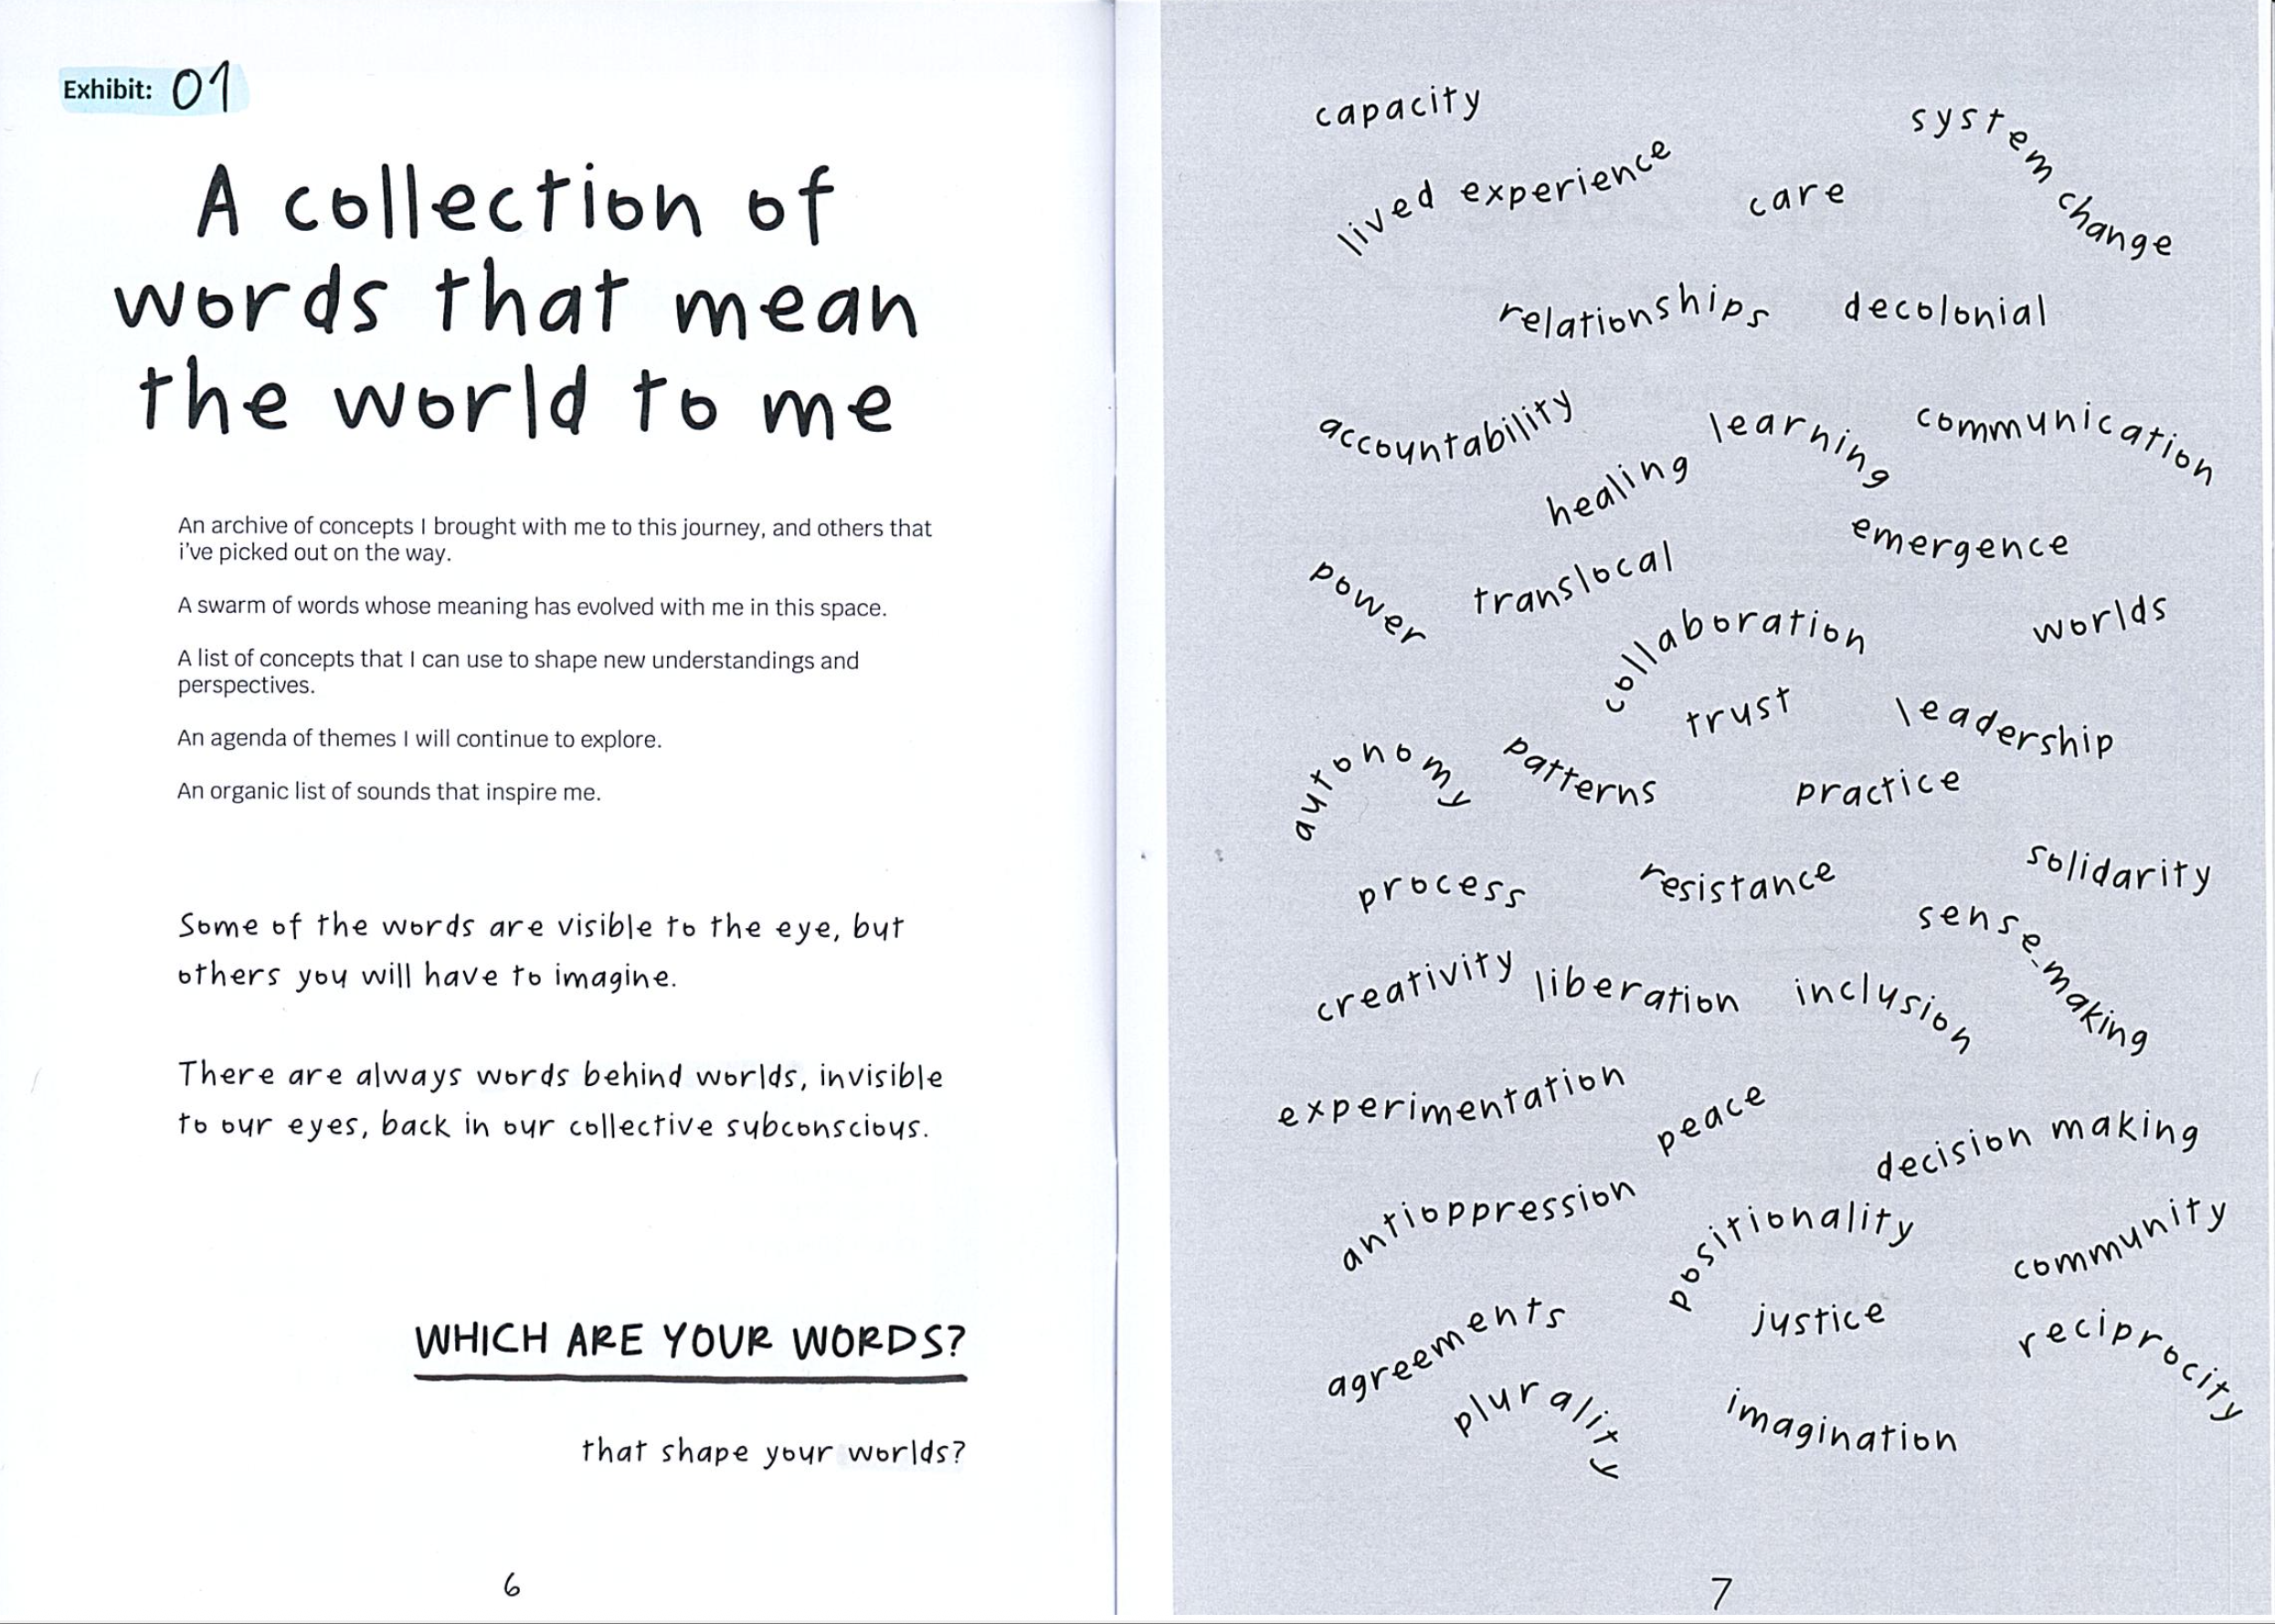 Exhibit: 01
A collection of
words that mean
the world to me
An archive of concepts I brought with me to this journey, and others that
i've picked out on the way.
A swarm of words whose meaning has evolved with me in this space.
A list of concepts that I can use to shape new understandings and
perspectives.
An agenda of themes I will continue to explore.
An organic list of sounds that inspire me.
Some of the words are visible to the eye, but
others you will have to imagine.
There are always words behind worlds, invisible
to our eyes, back in our collective subconscious.
WHICH ARE YOUR WORDS?
that shape your worlds?
6
capacity
system change
lived experience
care
relationships
decolonial
accountability
learning
communication
healing
emergence
power
translocal
collaboration
worlds
trust
leadership
autonomy
patterns
practice
process
resistance
solidarity
sense-making
creativity
liberation
inclusion
experimentation
peace
decision making
antioppression
positionality
community
agreements
justice
reciprocity
plurality
imagination
7